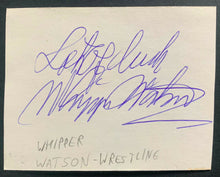 Lots of luck
Whipper Watson
WHIPPER
WATSON-WRESTLING